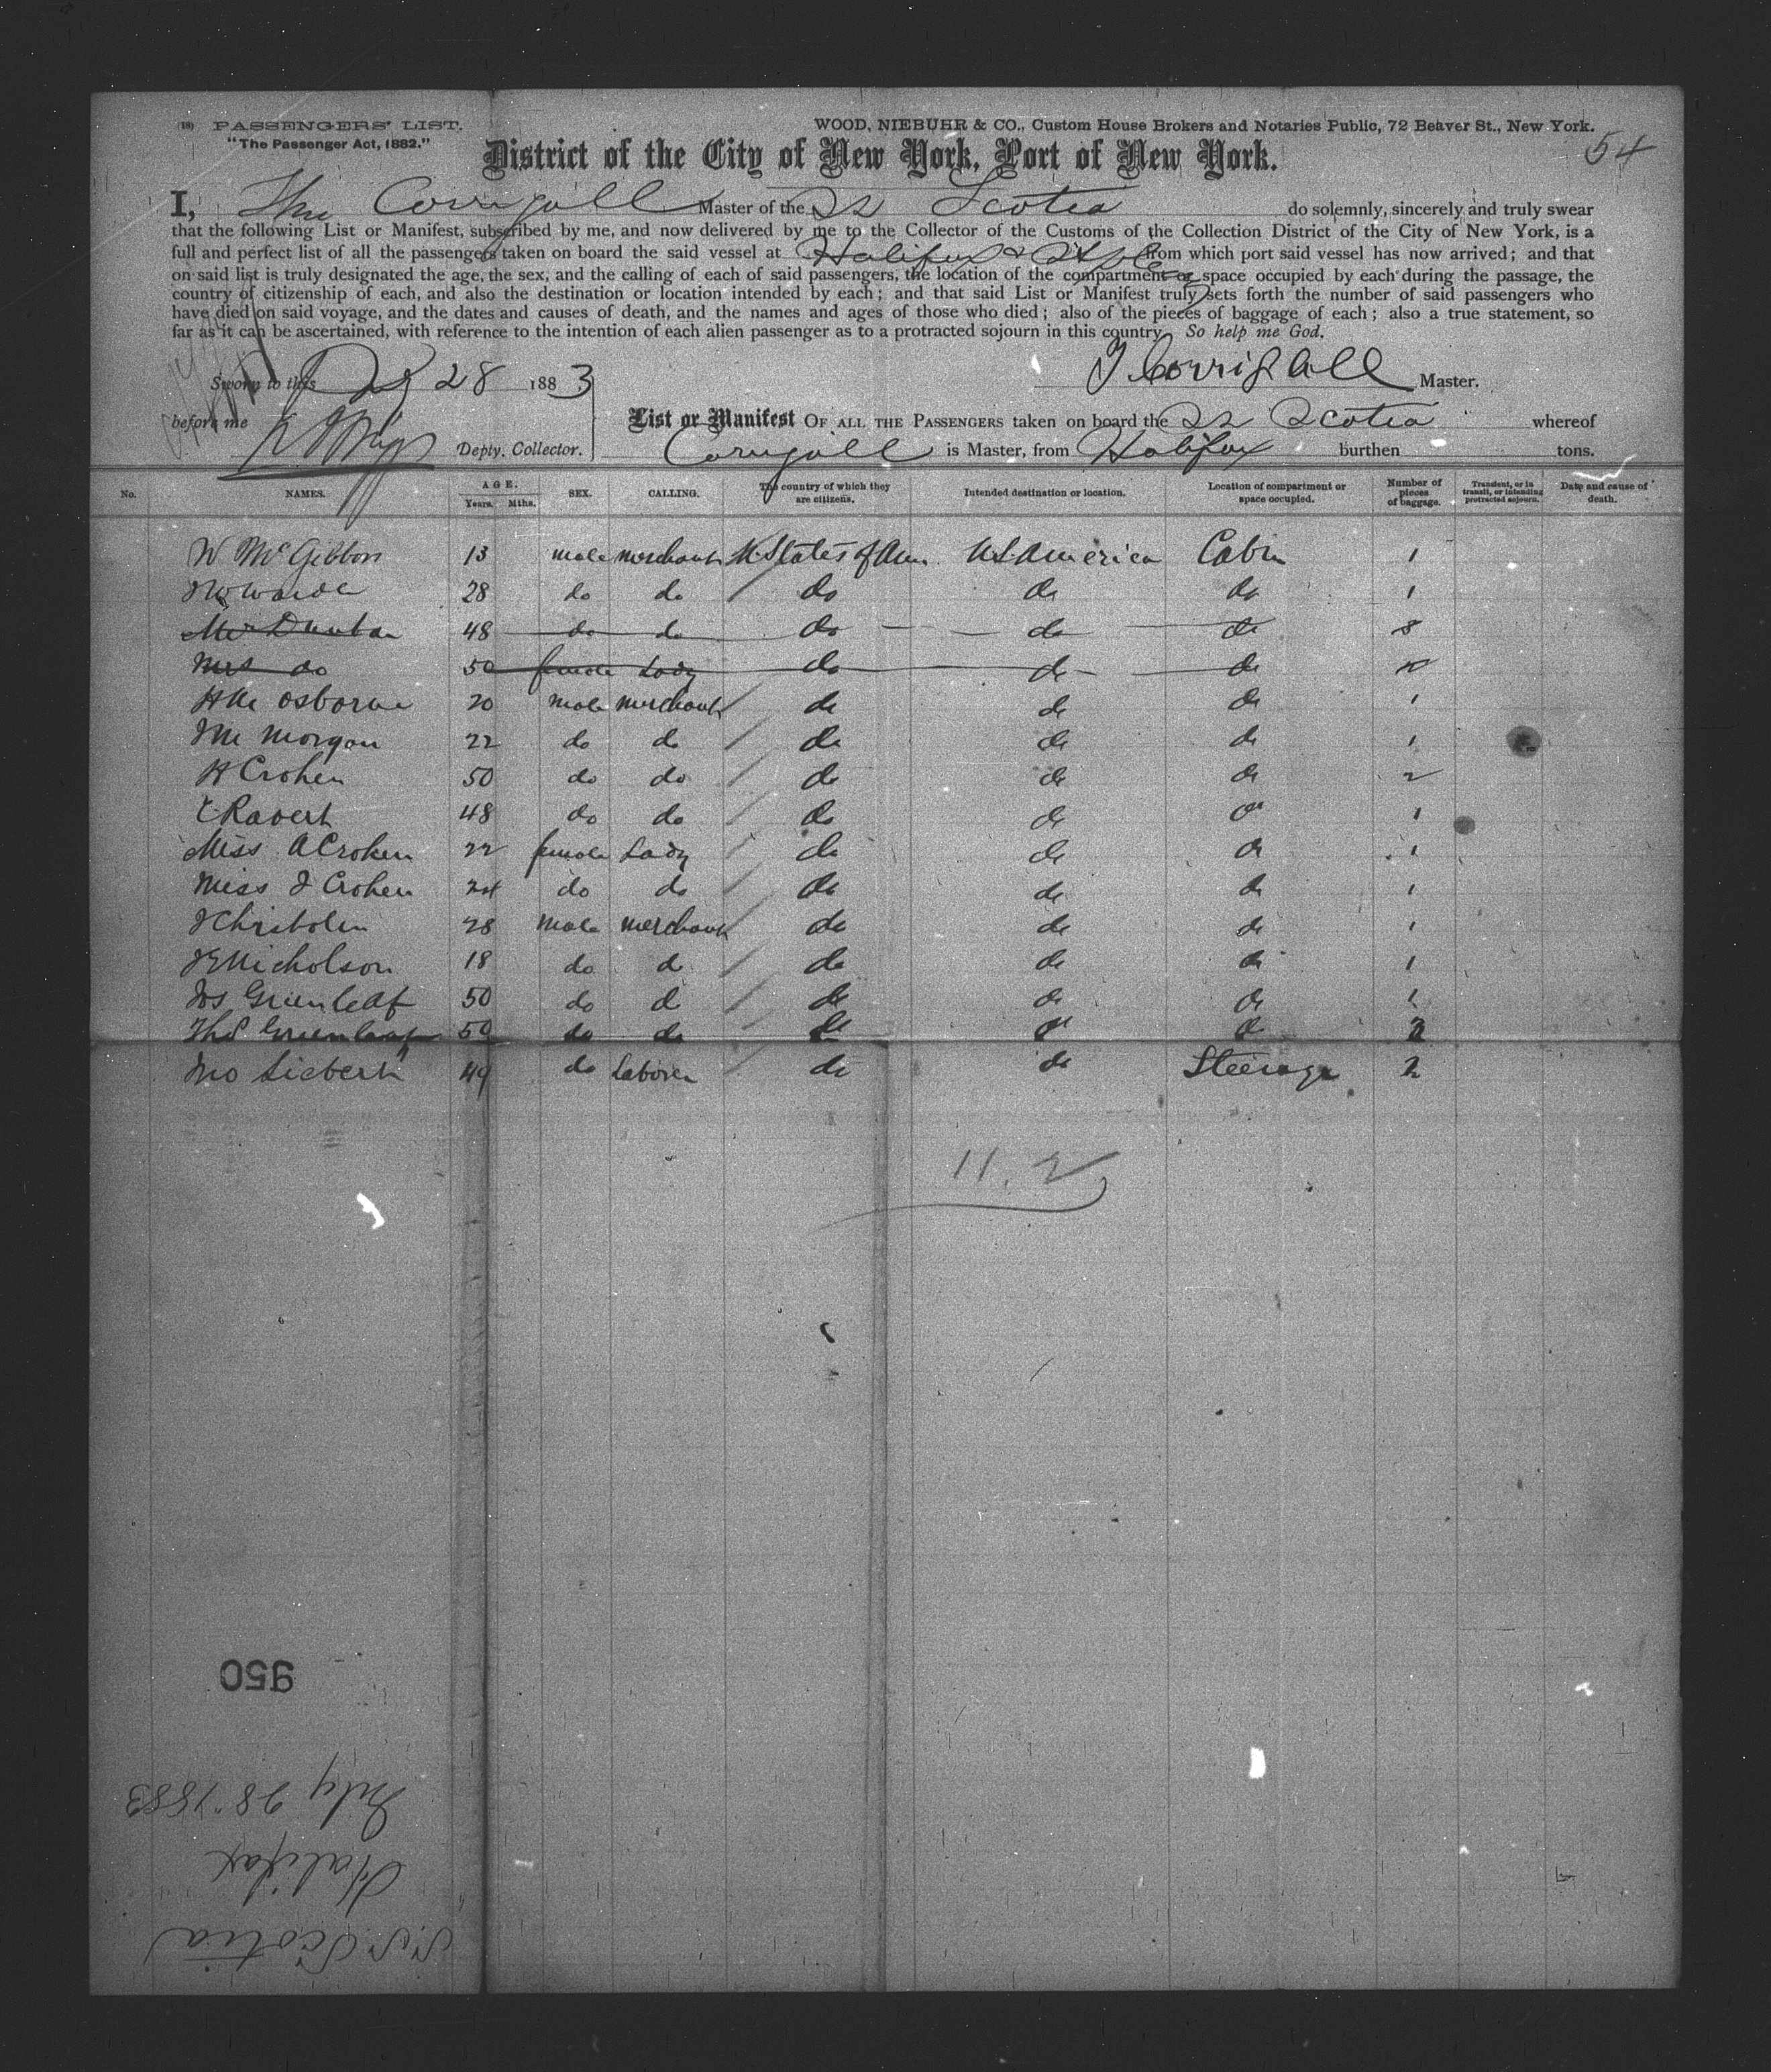 (18) PASSENGERS' LIST. WOOD, NIEBUHR & CO., Custom House Brokers and Notaries Public, 72 Beaver St., New York.
"The Passenger Act, 1882." 54
District of the City of New York, Port of New York.
I, Corrigall Master of the SS Scotia do solemnly, sincerely and truly swear
that the following List or Manifest, subscribed by me, and now delivered by me to the Collector of the Customs of the Collection District of the City of New York, is a
full and perfect list of all the passengers taken on board the said vessel at Halifax from which port said vessel has now arrived; and that
on said list is truly designated the age, the sex, and the calling of each of said passengers, the location of the compartment or space occupied by each during the passage, the
country of citizenship of each, and also the destination or location intended by each; and that said List or Manifest truly sets forth the number of said passengers who
have died on said voyage, and the dates and causes of death, and the names and ages of those who died; also of the pieces of baggage of each; also a true statement, so
far as it can be ascertained, with reference to the intention of each alien passenger as to a protracted sojourn in this country. So help me God.
Sworn to this 28 1883 Corrigall Master.
before me Depty. Collector.
List or Manifest OF ALL THE PASSENGERS taken on board the SS Scotia whereof
Corrigall is Master, from Halifax burthen tons.
No. NAMES. AGE. Years. Mths. SEX. CALLING. The country of which they are citizens. Intended destination or location. Location of compartment or space occupied. Number of pieces of baggage. Transient, or in transit, or intending protracted sojourn. Date and cause of death.
W McGibbon 13 male merchant U States of Am U S America Cabin 1
28 do do do do do 1
Mr Dunbar 48 do do do do do 8
Mrs do 50 female Lady do do do
H M Osborne 20 male merchant do do do 1
J M Morgan 22 do do do do do 1
H Crohen 50 do do do do do 2
48 do do do do do 1
Miss A Crohen 22 female Lady do do do 1
Miss J Crohen 24 do do do do do 1
J Chisholm 28 male merchant do do do 1
J E Nicholson 18 do do do do do 1
Jos Greenleaf 50 do do do do do 1
Thos Greenleaf 50 do do do do do 2
Jno Siebert 49 do laborer do do Steerage 2
11. 2
950
July 28 1883
Halifax
S.S. Scotia